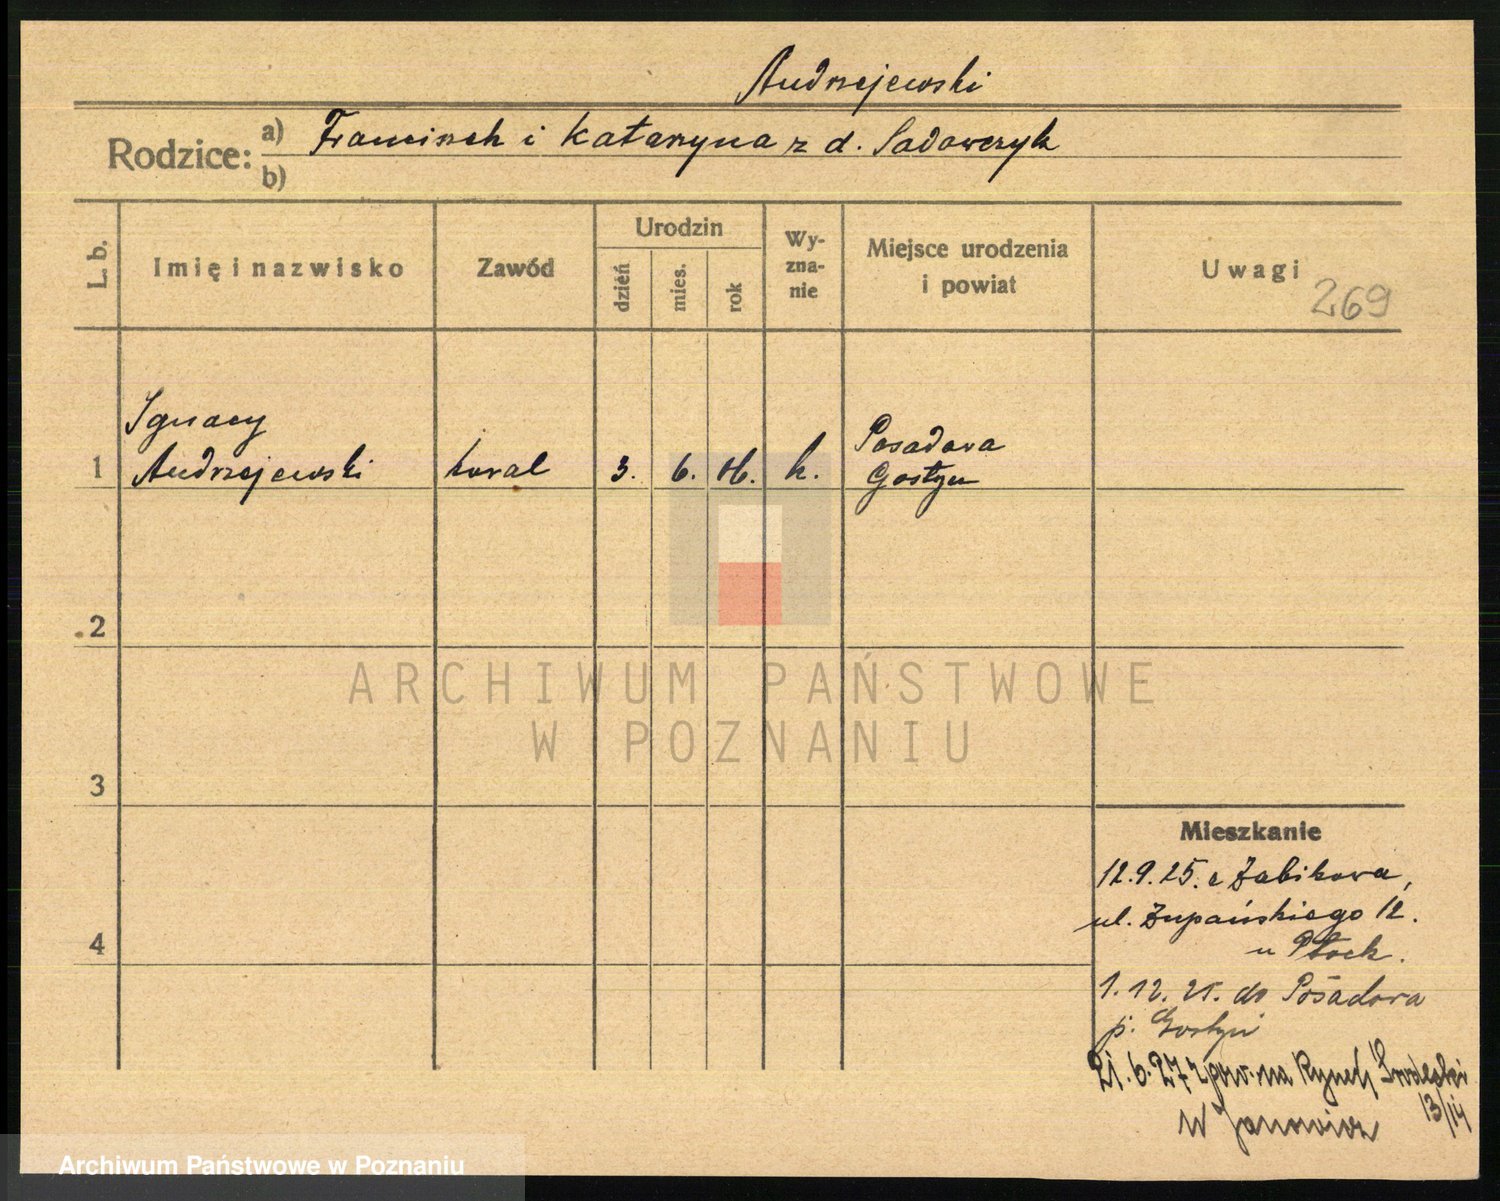 Andrzejewski
Rodzice: a) Franciszek i Katarzyna z d. Sadowczyk
b)
L. b. Imię i nazwisko Zawód Urodzin dzień mies. rok Wy-zna-nie Miejsce urodzenia i powiat Uwagi 269
Ignacy Posadowa
1 Andrzejewski kowal 3. 6. 06. k. Gostyn
2
ARCHIWUM PAŃSTWOWE
W POZNANIU
3
Mieszkanie
12.9.25. z Żabikowa,
ul. Żupańskiego 12.
4
u Ptock.
1.12.25. do Posadowa
p. Gostyń
21.6.27 z pow. na Rynek Śródecki
13/14
Archiwum Państwowe w Poznaniu